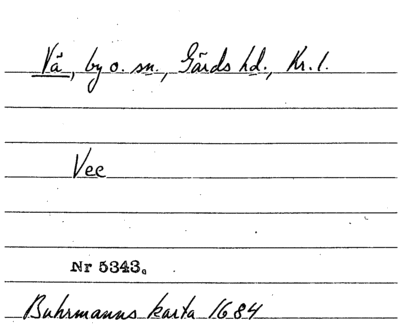 Vä, by o. sn., Gärds hd., Kr. l.
Vee
Nr 5343.
Buhrmanns karta 1684